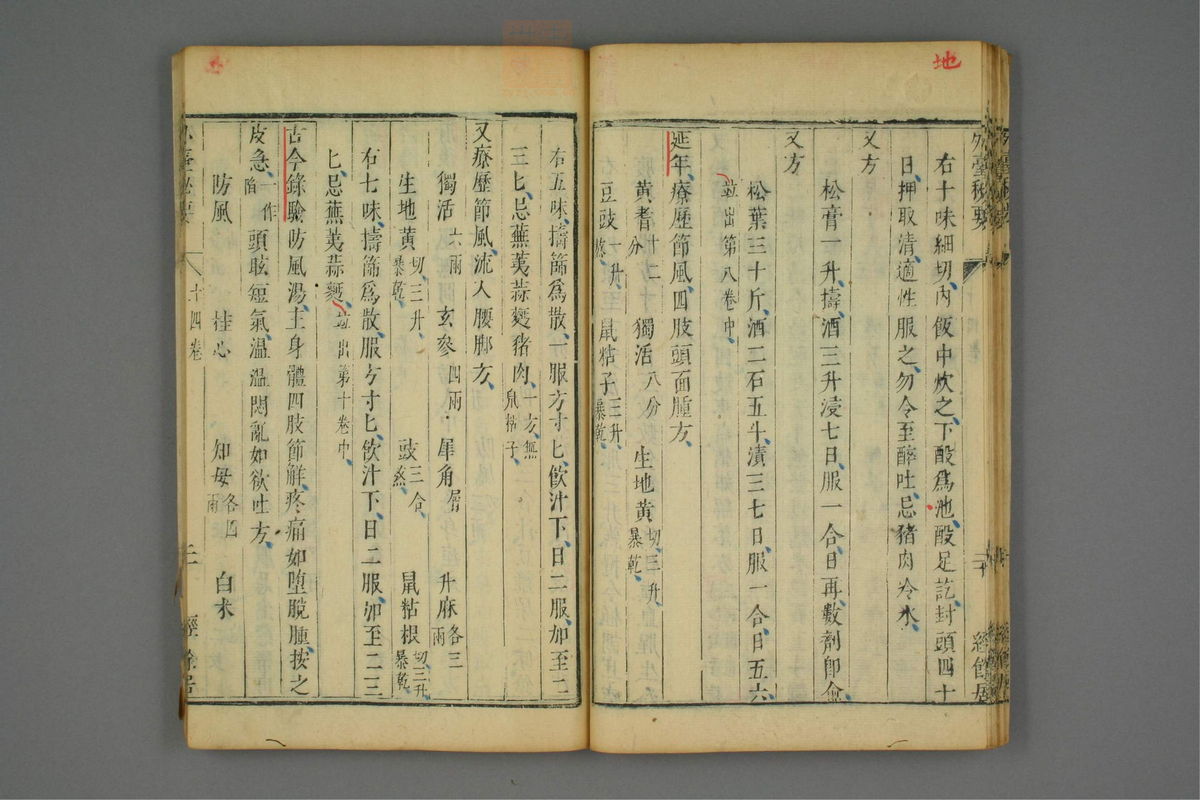 地
外臺秘要
二十
經餘居
右十味細切內飯中炊之下酘爲池酘足訖封頭四十
日押取清適性服之勿令至醉吐忌豬肉冷水
又方
松膏一升擣酒三升浸七日服一合日再數劑卽愈
又方
松葉三十斤酒二石五斗漬三七日服一合日五六
並出第八卷中
延年療歷節風四肢頭面腫方
黃耆十二分 獨活八分 生地黃切三升暴乾
豆豉一升熬 鼠粘子三升暴乾
右五味擣篩爲散一服方寸匕飲汁下日二服加至二
三匕忌蕪荑蒜麪豬肉一方無鼠粘子
又療歷節風流入腰脚方
獨活六兩 玄參四兩 犀角屑 升麻各三兩
生地黃切三升暴乾 豉三合熬 鼠粘根切三升暴乾
右七味擣篩爲散服方寸匕飲汁下日二服加至二三
匕忌蕪荑蒜麪並出第十卷中
古今錄驗防風湯主身體四肢節解疼痛如墮脫腫按之
皮急一作陷頭眩短氣溫溫悶亂如欲吐方
防風 桂心 知母各四兩 白朮
外臺秘要
十四卷
二
經餘居